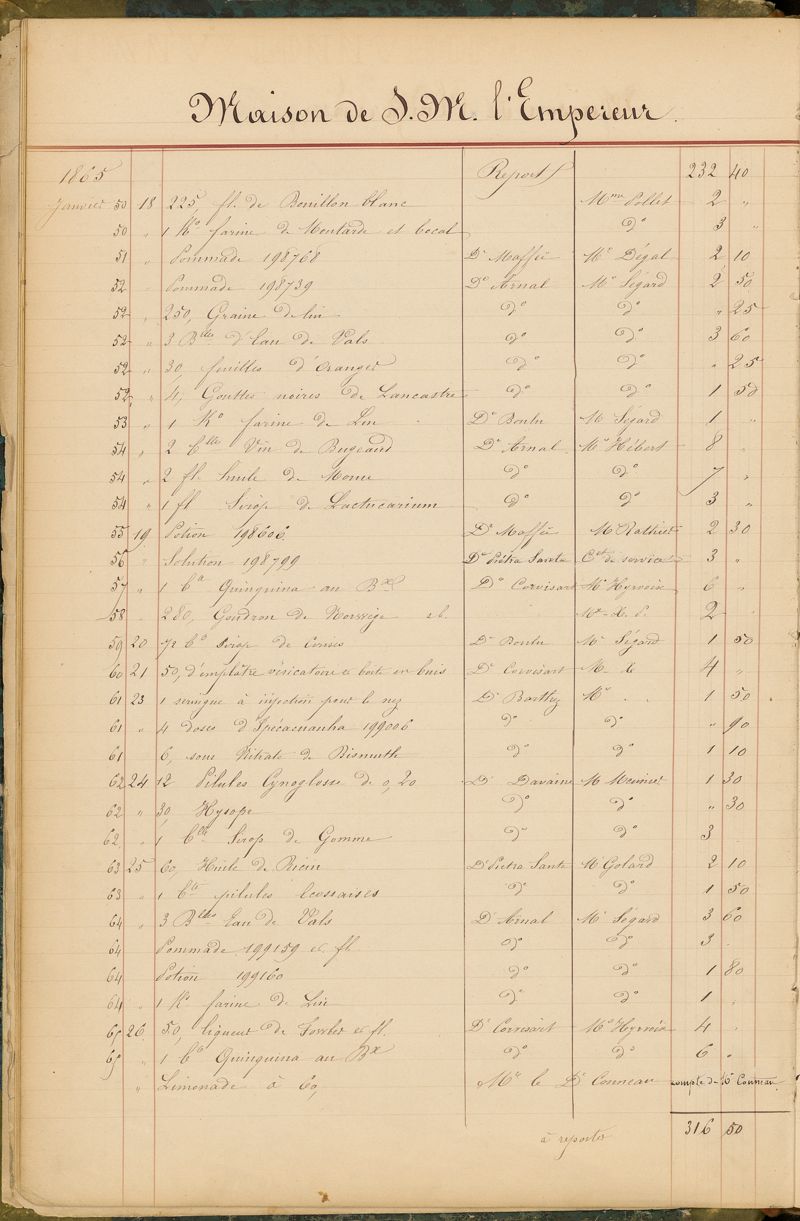 Maison de S.M. l'Empereur.
1865 Report 232 40
Janvier 50 18 225, fl. de Bouillon blanc Mme Pollet 2 "
50 " 1 Ko farine de Moutarde et bocal do 3 "
51 " Pommade 198768 Dr Maffei Mr Dégat 2 10
52 Pommade 198739 Dr Arnal Mr Ségard 2 50
52 " 250, Graine de lin do do " 25
52 " 3 Blles d'Eau de Vals do do 3 60
52 " 30 feuilles d'oranger do do " 25
52 " 4, Gouttes noires de Lancastre do do 1 50
53 " 1 Ko farine de Lin Dr Boulu Mr Ségard 1 "
54 " 2 blles Vin de Bugeaud Dr Arnal Mr Hébert 8 "
54 " 2 fl. huile de Morue do do 7 "
54 " 1 fl Sirop de Lactucarium do do 3 "
55 19 Potion 198606 Dr Maffei M Rathier 2 30
56 " Solution 198799 Dr Piétra Santa Ct de service 3 "
57 " 1 bll Quinquina au Bx Dr Corvisart Mr Hyrvoix 6 "
58 280, Goudron de Norwège 2
59 20 1/2 bo Sirop de Dr Boulu Mr Ségard 1 50
60 21 50, d'emplâtre vésicatoire et boite en buis Dr Corvisart M. 4 "
61 23 1 seringue à injection pour le nez Dr Barthez Mr . . 1 50
61 " 4 doses d'Ipécacuanha 199006 do do " 90
61 6, sous Nitrate de Bismuth do do 1 10
62 24 12 Pilules Cynoglosse de 0,20 Dr Davaine M 1 30
62 " 30, Hysope do do " 30
62 " 1 blle Sirop de Gomme do do 3
63 25 60, Huile de Ricin Dr Piétra Santa Mr Golard 2 10
63 " 1 bte pilules écossaises do do 1 50
64 " 3 Blles Eau de Vals Dr Arnal Mr Ségard 3 60
64 Pommade 199159 et fl do do 3
64 Potion 199160 do do 1 80
64 " 1 Ko farine de Lin do do 1 "
65 26 50, liqueur de et fl. Dr Corvisart Mr Hyrvoix 4 "
65 " 1 bo Quinquina au Bx do do 6 "
" Limonade à 60, Mr le Dr Conneau compte de Mr Conneau
à reporter 316 50